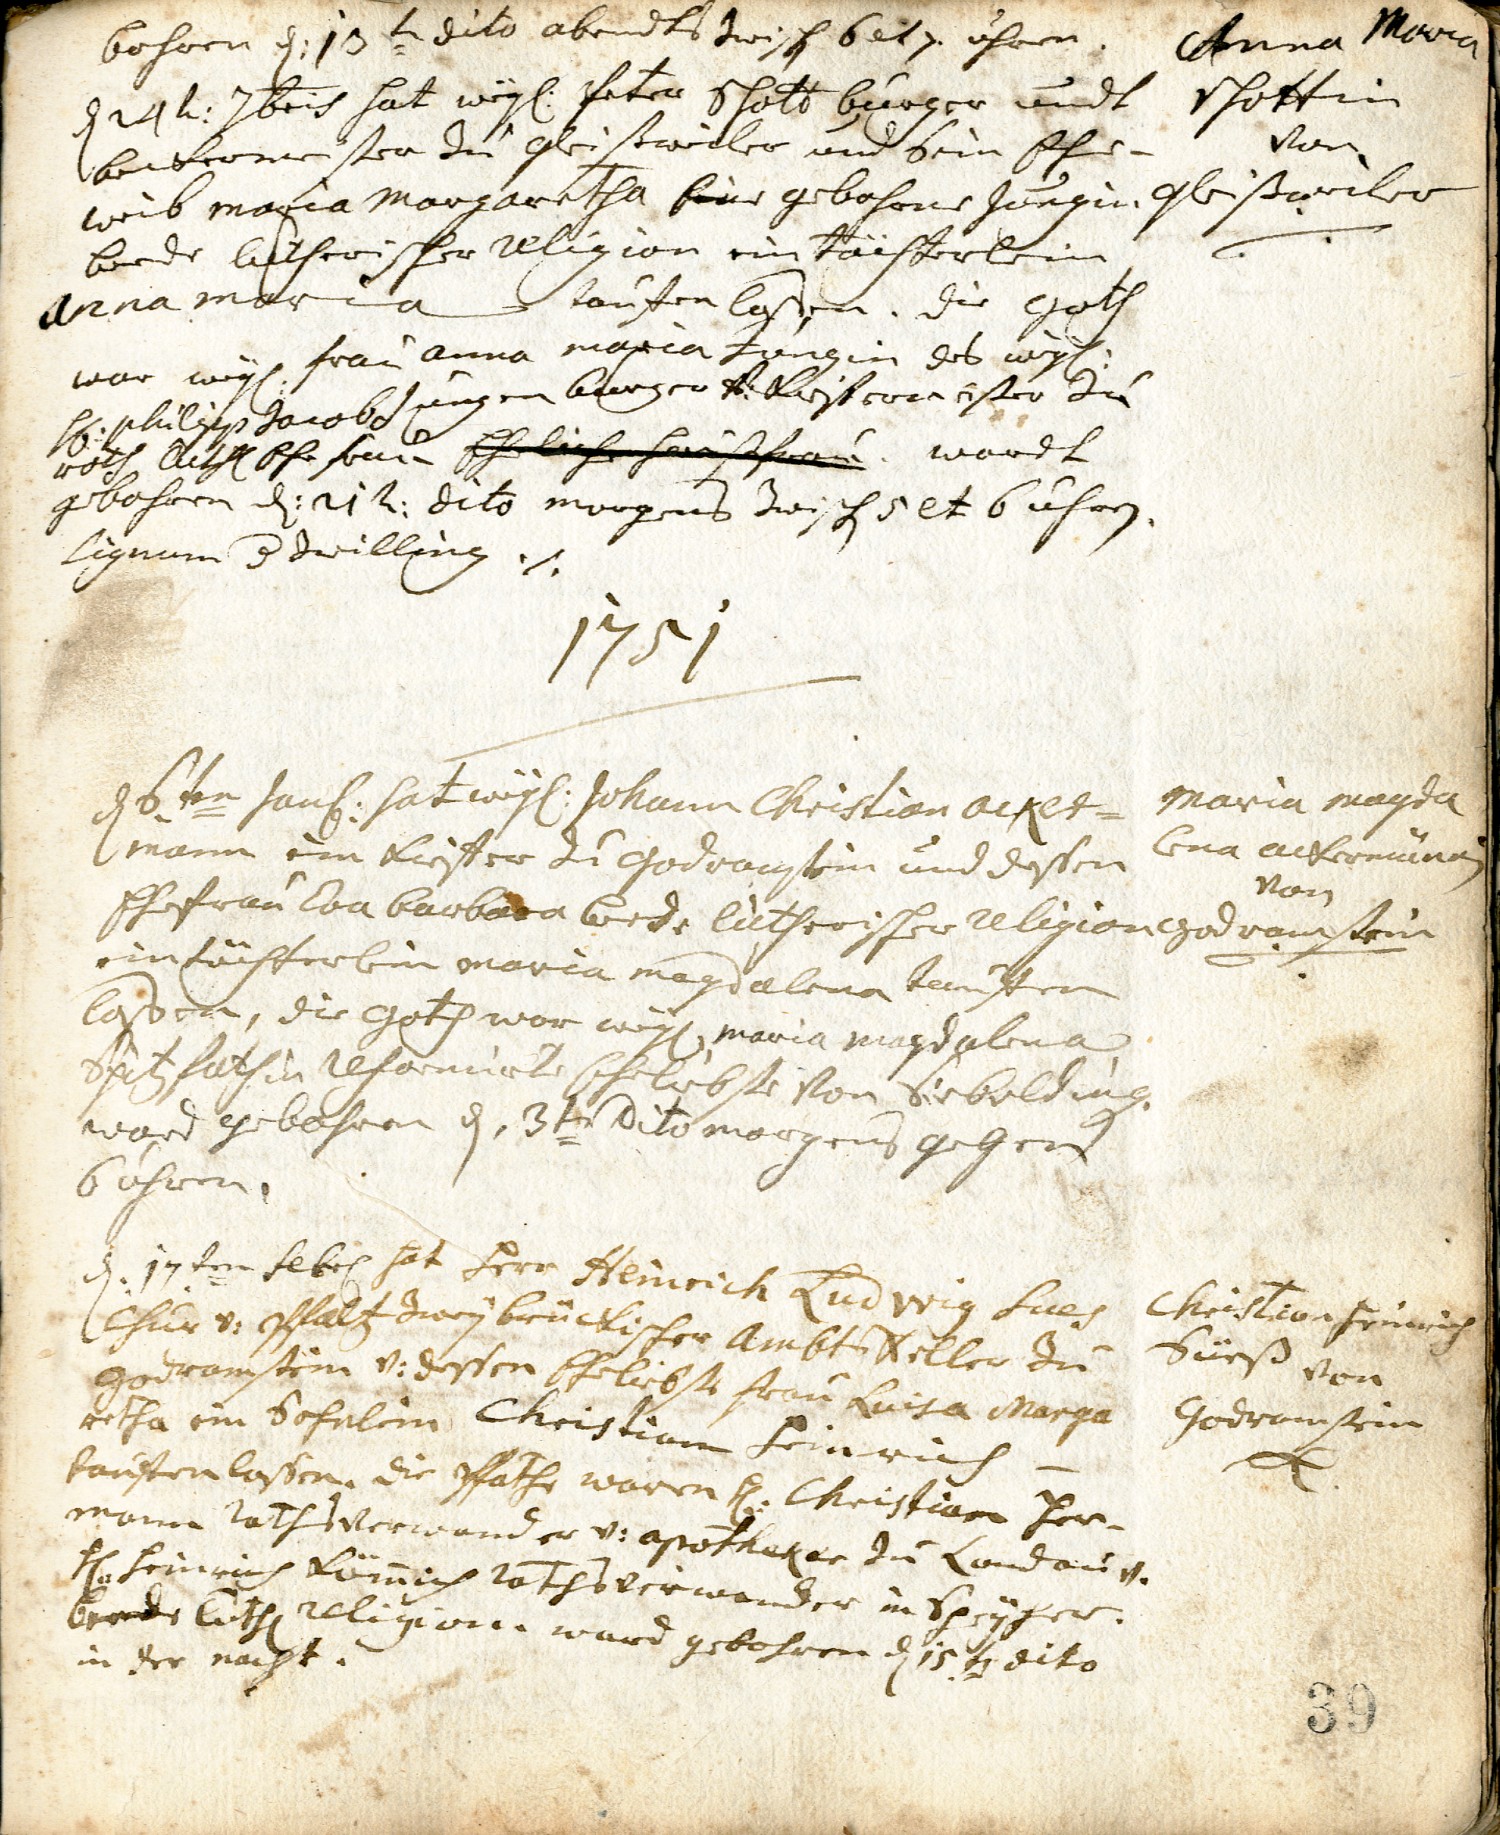 bohren d: 13t dito abendts zwisch 6 et 7. uhren.
Anna Maria
Schottin
von
gleißweiler
d 24t: 7bris hat weyl: Peter Schott burger undt
beckermeister zu gleißweiler und sein Ehe-
weib maria margaretha eine gebohrne Jungin.
beede lutherischer religion ein töchterlein
anna maria tauffen lassen. die goth
war weyl: frau anna maria Jungin des weyl:
H: philips Jacob Jungen burger v: Kiefermeister zu
roth luth Ehefrau Eheliche haußfrau. wardt
gebohren d: 21t: dito morgens zwisch 5 et 6 uhren.
signum zwilling ./.
1751
d 6ten Jan: hat weyl: Johann Christian acker=
mann ein Kiefer zu godramstein und dessen
Ehefrau Eva barbara beede lutherischer religion
ein töchterlein maria magdalena tauffen
lassen, die goth war weyl, maria magdalena
reformirte Eheliebste von Siebelding.
ward gebohren d, 3t dito morgens gegen
6 uhren.
maria magda
lena ackermänin
von
godramstein
d. 17ten febr hat Herr Heinrich Ludwig Sues
Chur v: Pfaltz zweybrückischer Ambts Keller zu
godramstein v: dessen Eheliebste frau Luisa Marga
retha ein Sohnlein Christian Heinrich
tauffen lassen. die Pfathe waren H: Christian Her-
mann rathsverwander v: apotheker zu Landau v.
H. Heinrich Römich rathsverwander in Speyher.
beede luth religion. ward gebohren d 15t dito
in der nacht.
Christian Heinrich
Süeß von
Godramstein
39